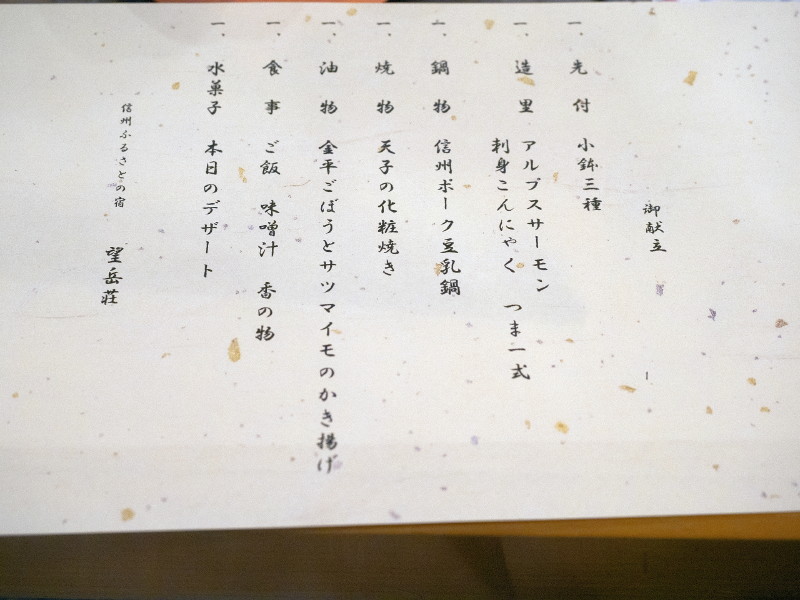 御献立
一、先付 小鉢三種
一、造里 アルプスサーモン
刺身こんにゃく つま一式
一、鍋物 信州ポーク豆乳鍋
一、焼物 天子の化粧焼き
一、油物 金平ごぼうとサツマイモのかき揚げ
一、食事 ご飯 味噌汁 香の物
一、水菓子 本日のデザート
信州ふるさとの宿
望岳荘